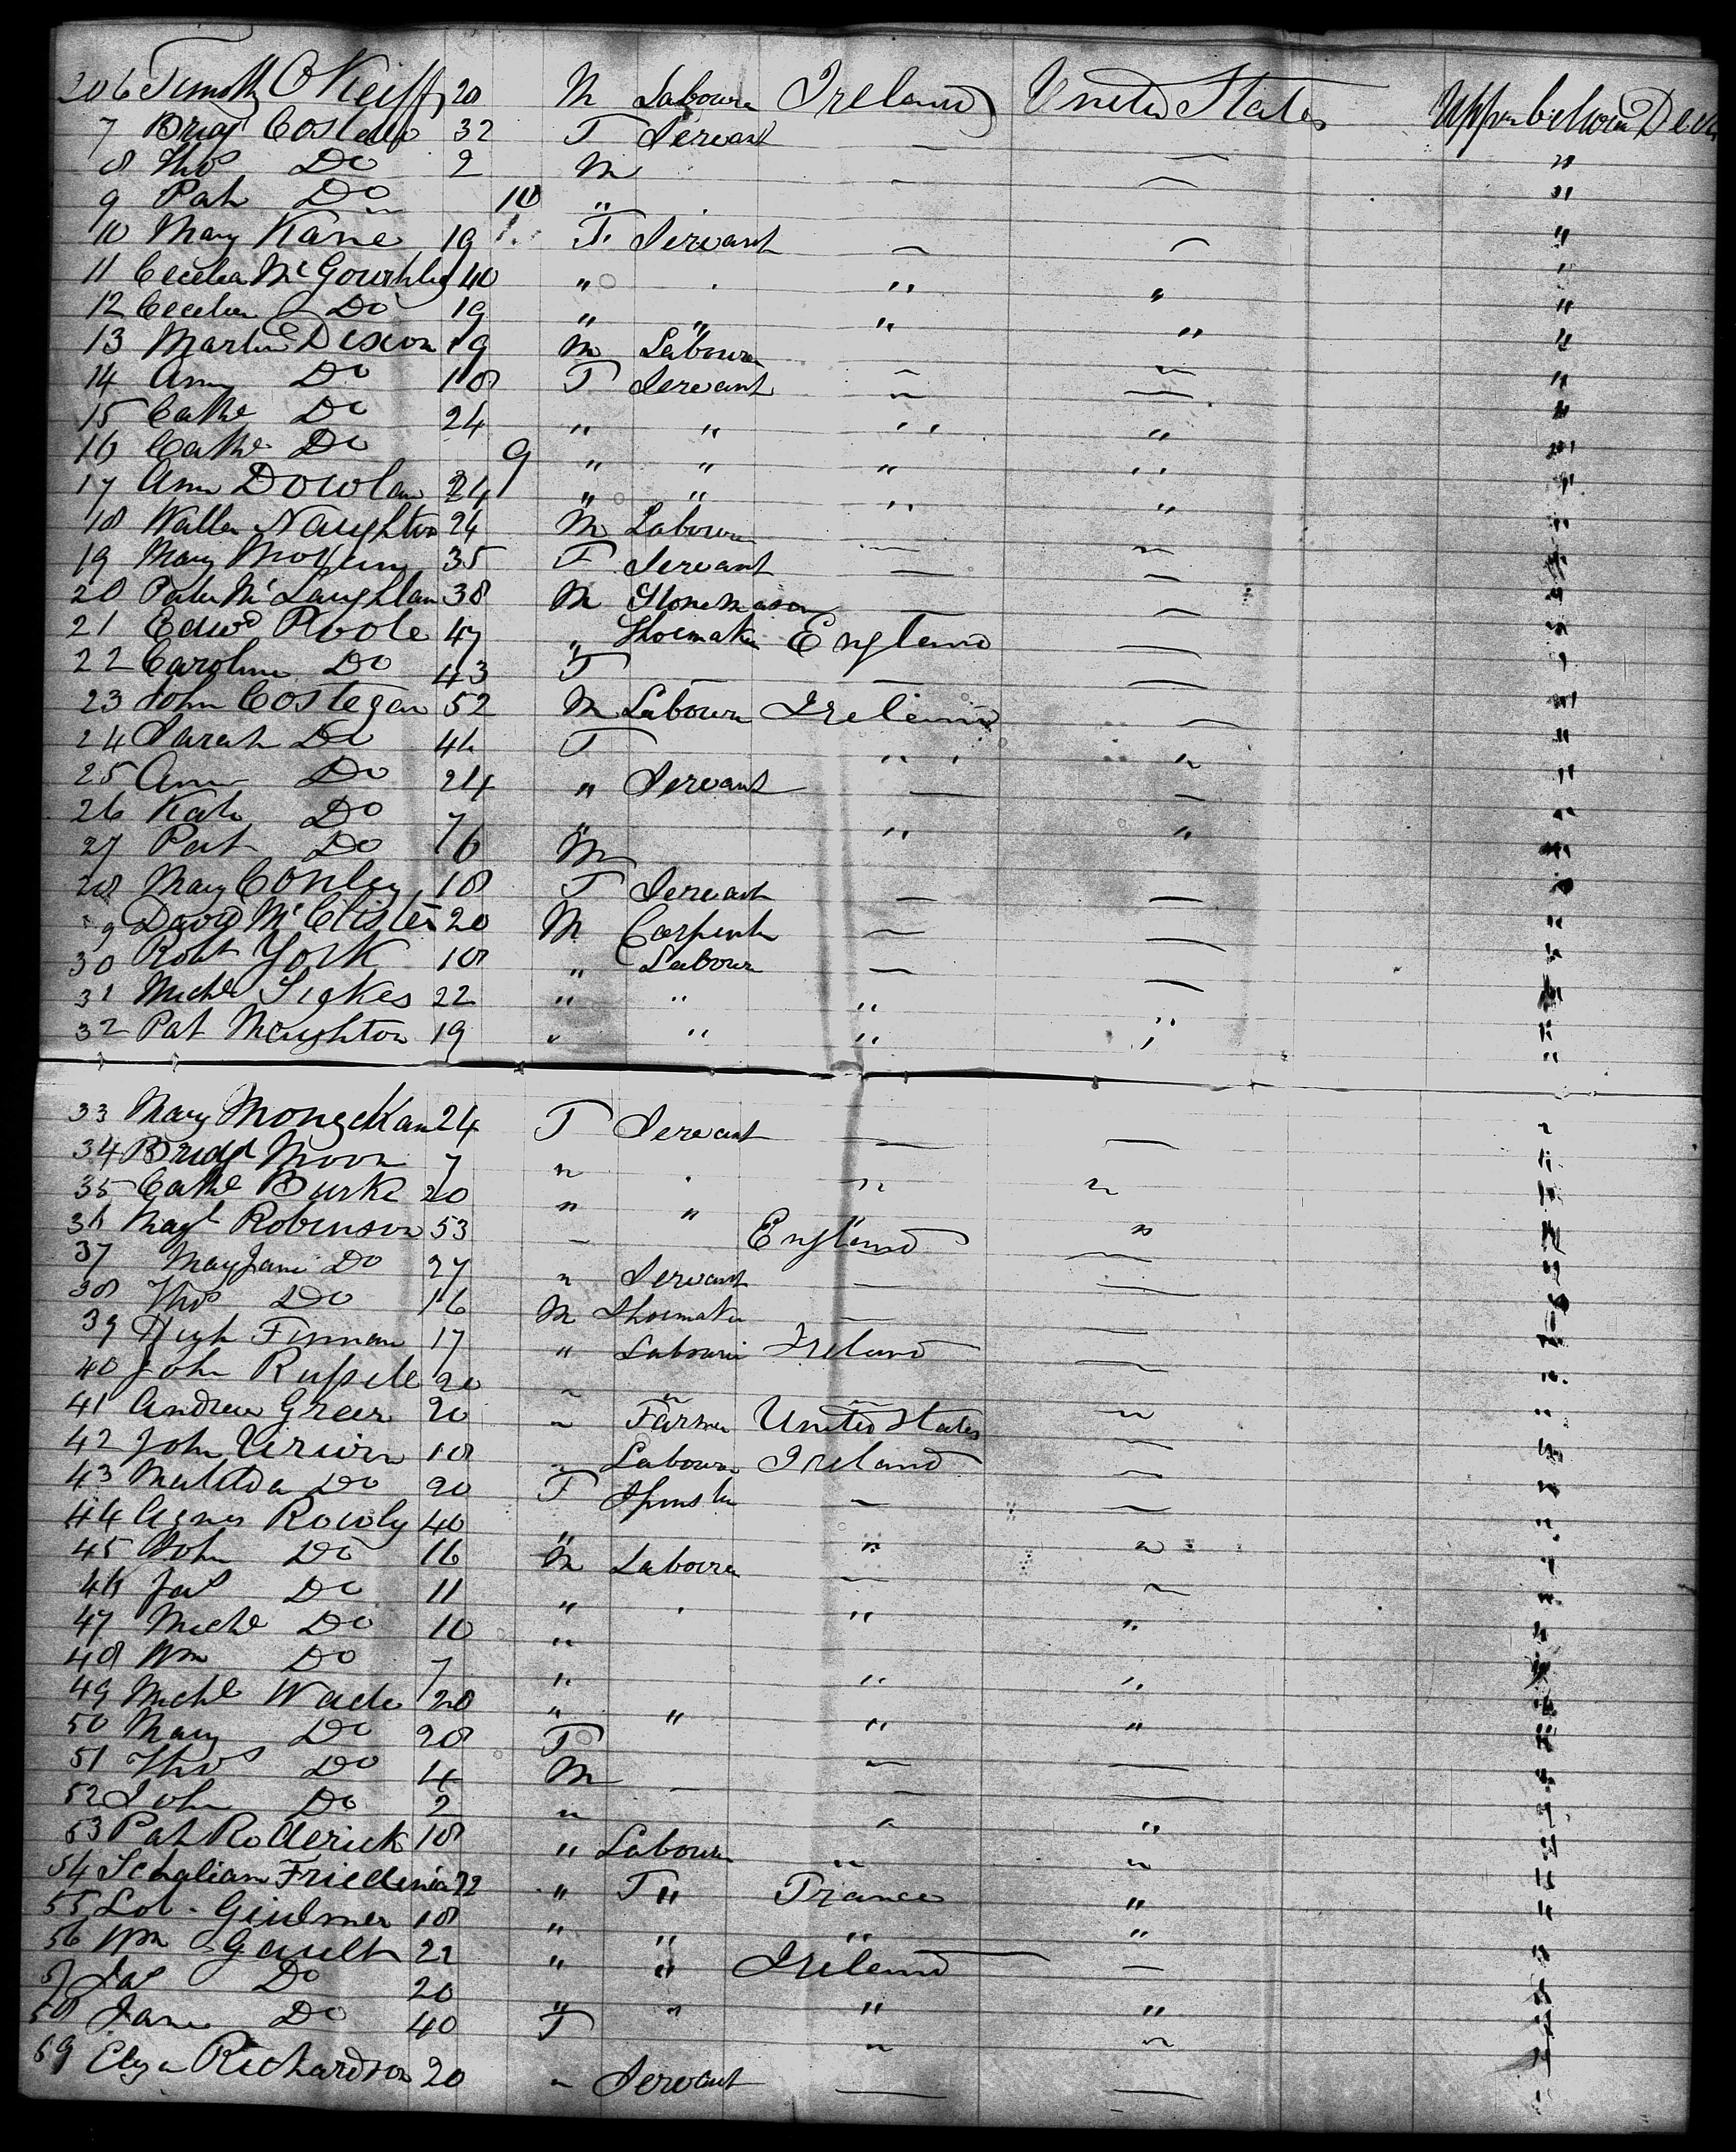 206 Timothy O Keiff 20 M Labourer Ireland United States Upper between Decks
7 Bridgt Costello 32 F Servant — — "
8 Thos Do 2 M — — "
9 Pat Do 10 " "
10 Mary Kane 19 F Servant — — "
11 Cecelia McGourhley 40 " " " "
12 Cecelia Do 19 " " " " "
13 Martin Dixon 19 M Labourer — — "
14 Amy Do 18 F Servant — — "
15 Cathe Do 24 " " " " "
16 Cathe Do 9 " " " " "
17 Ann Dowlan 24 " " " " "
18 Walter Naughton 24 M Labourer — — "
19 Mary 35 F Servant — — "
20 Peter McLaughlan 38 M Stone Mason — — "
21 Edwd Poole 47 " Shoemaker England — "
22 Caroline Do 43 F — — — "
23 John Costegan 52 M Labourer Ireland — "
24 Sarah Do 46 F " " "
25 Ann Do 24 " Servant — — "
26 Kate Do 7 " " " "
27 Pat Do 16 M "
28 Mary Conley 18 F Servant — — "
9 David McClister 20 M Carpenter — — "
30 Robt York 18 " Labourer — — "
31 Michl Sigkes 22 " " " "
32 Pat Maughton 19 " " " " "
33 Mary Mongekan 24 F Servant — — "
34 Bridgt Moon 7 " " " "
35 Cathe Burke 20 " " " " "
36 Magt Robinson 53 " England — "
37 Mary Jane Do 27 " Servant — — "
38 Thos Do 16 M Shoemaker — — "
39 Hugh Finnan 17 " Labourer Ireland — "
40 John Russele 20 " " " " "
41 Andrew Greer 20 " Farmer United States — "
42 John Urwin 18 " Labourer Ireland — "
43 Matilda Do 20 F Spinster — — "
44 Agnes Rowly 40 " " " "
45 John Do 16 M Labourer — — "
46 Jas Do 11 " " " "
47 Michl Do 10 " "
48 Wm Do 7 " " " "
49 Michl Wade 20 " " " " "
50 Mary Do 28 F — — "
51 Thos Do 4 M — — — "
52 John Do 2 " " " "
53 Pat Roderick 18 " Labourer " " "
54 Schaliam 22 " F " France " "
55 Lob. Giulmer 18 " " " " "
56 Wm Gault 22 " " Ireland — "
57 Jas Do 20 " " " " "
58 Jane Do 40 F " " "
59 Elyza Richardson 20 " Servant — — "